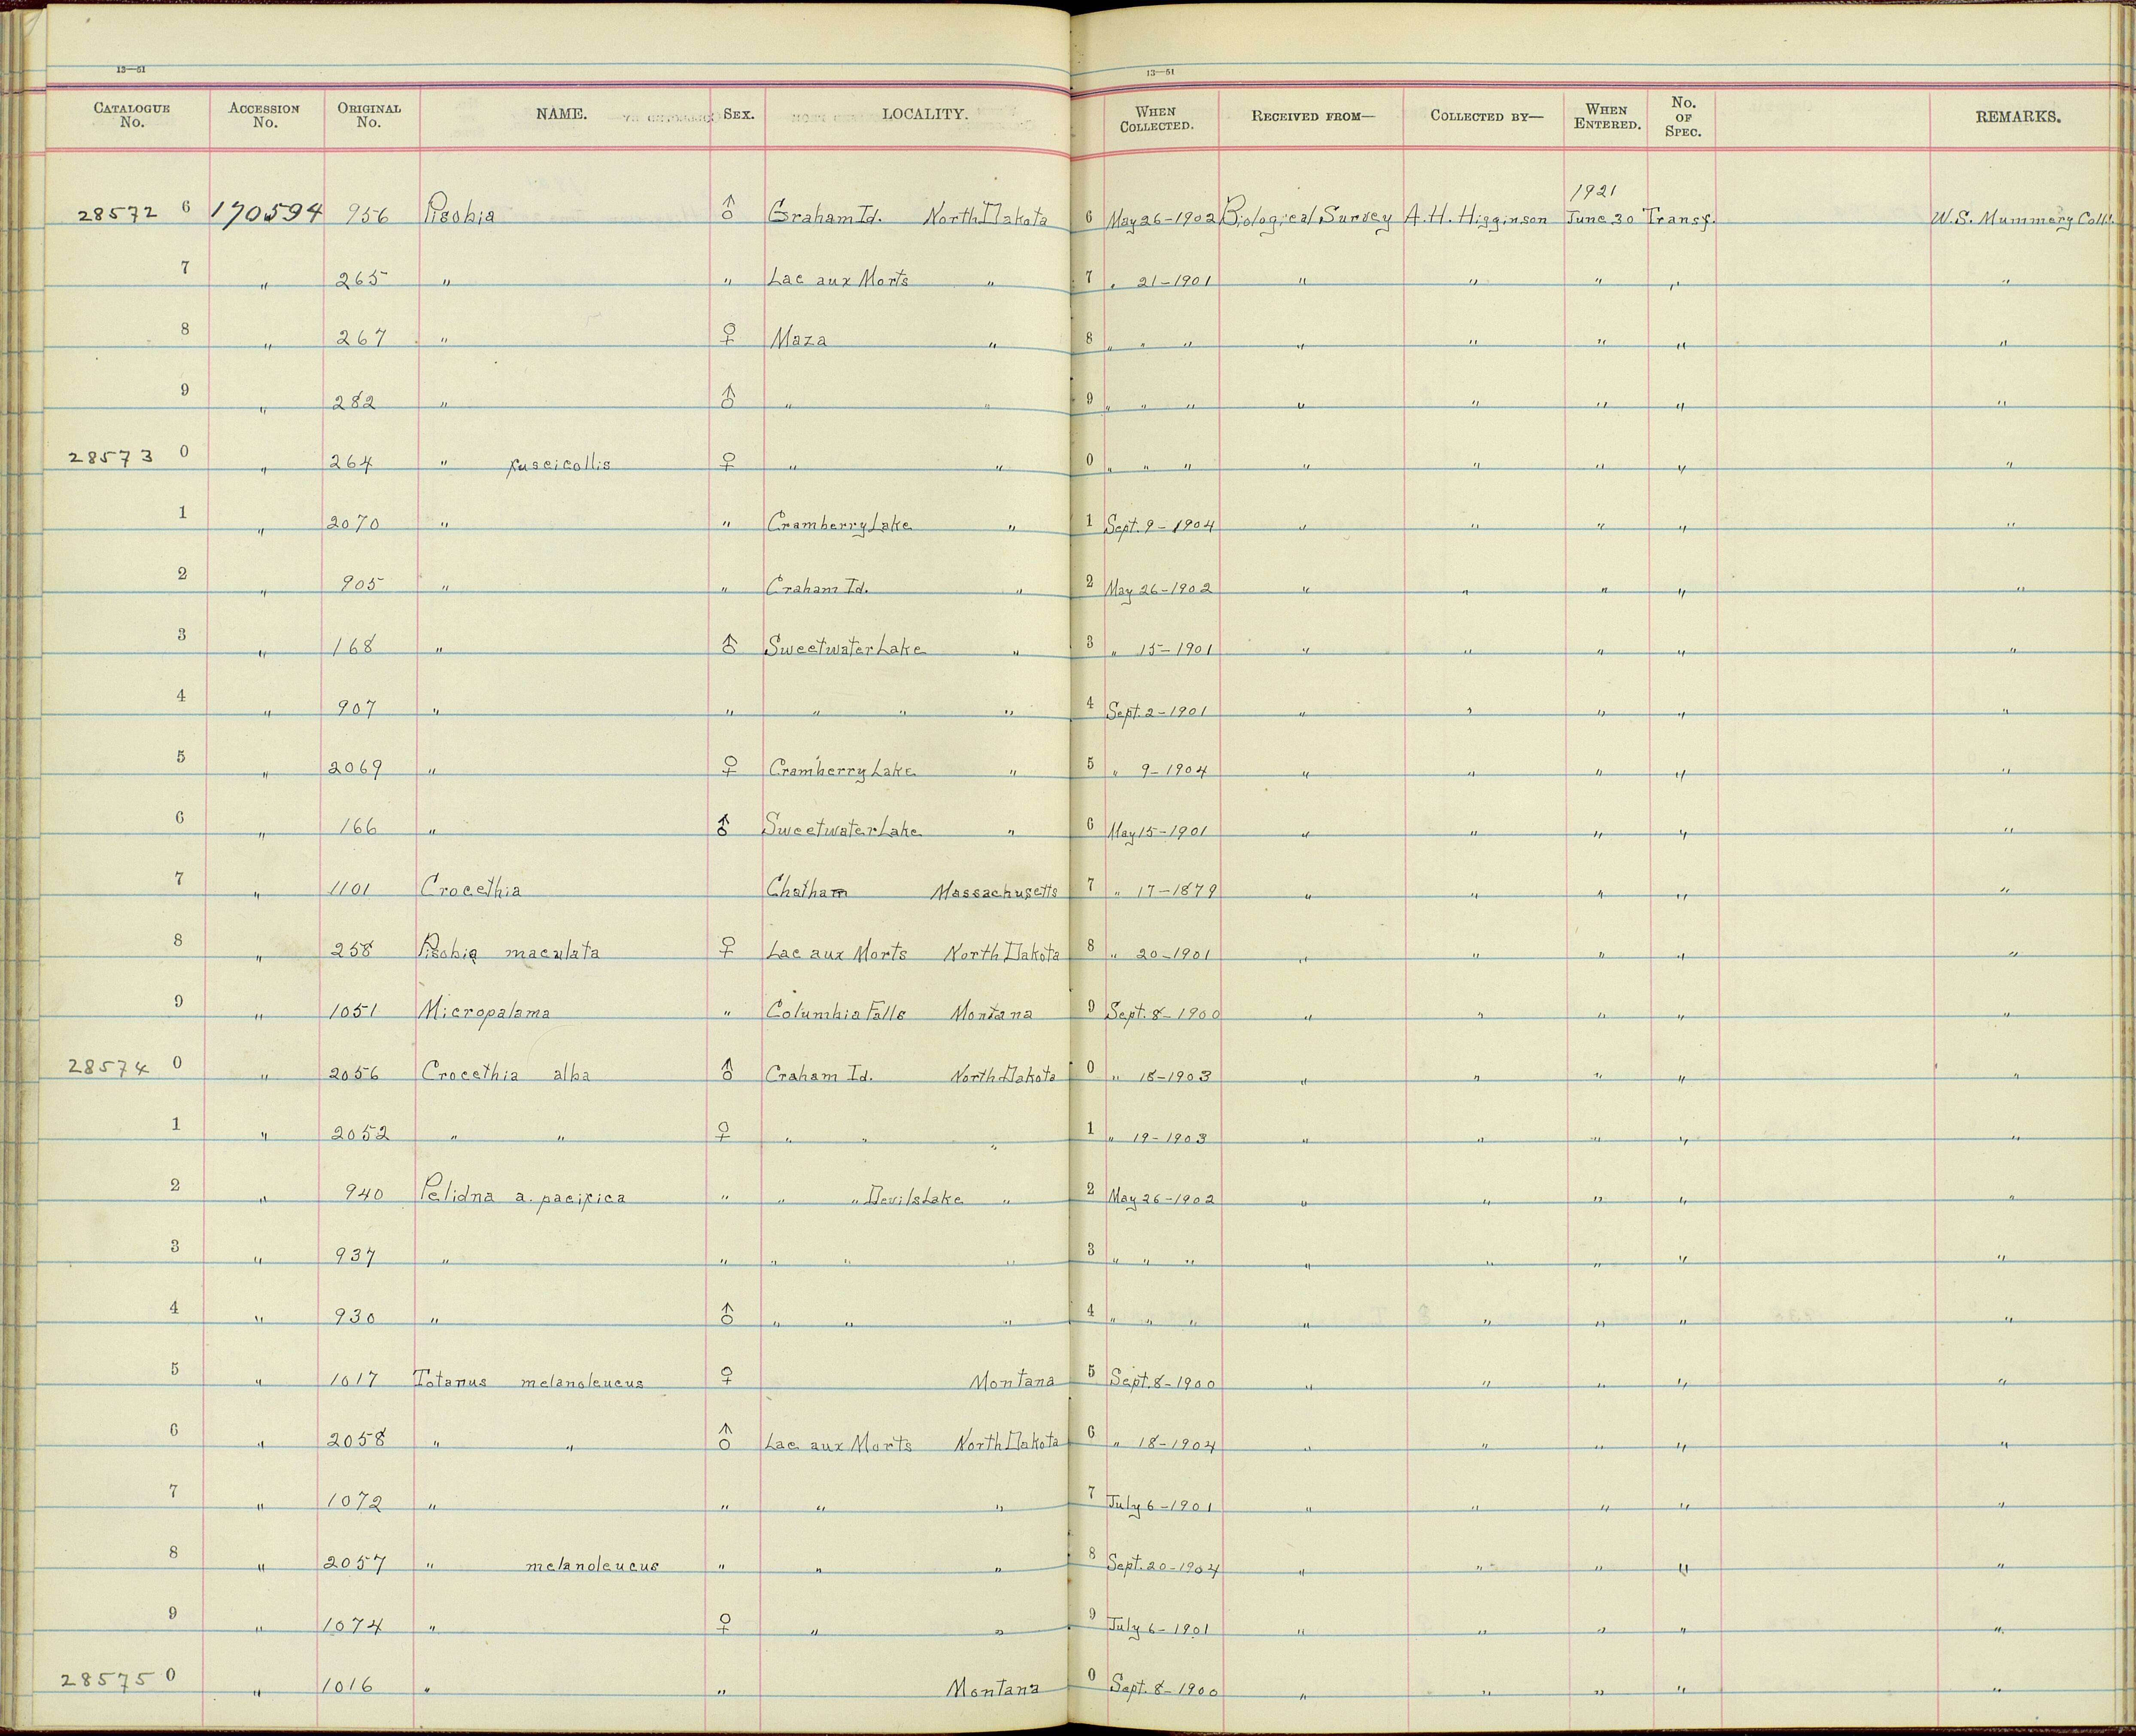 13—51 13—51
CATALOGUE No. ACCESSION No. ORIGINAL No. NAME. SEX. LOCALITY. WHEN COLLECTED. RECEIVED FROM— COLLECTED BY— WHEN ENTERED. No. OF SPEC. REMARKS.
1921
28572 6 170594 956 Pisobia ♂ Graham Id. North Dakota 6 May 26-1902 Biological Survey A.H. Higginson June 30 Transf. W.S. Mummery Coll.
7 " 265 " " Lac aux Morts " 7 " 21-1901 " " " " "
8 " 267 " ♀ Maza " 8 " " " " " " " "
9 " 282 " ♂ " " 9 " " " " " " " "
28573 0 " 264 " fuscicollis ♀ " " 0 " " " " " " " "
1 " 2070 " " Cramberry Lake " 1 Sept. 9-1904 " " " " "
2 " 905 " " Craham Id. " 2 May 26-1902 " " " " "
3 " 168 " ♂ Sweetwater Lake " 3 " 15-1901 " " " " "
4 " 907 " " " " " 4 Sept. 2-1901 " " " " "
5 " 2069 " ♀ Cramberry Lake " 5 " 9-1904 " " " " "
6 " 166 " ♂ Sweetwater Lake " 6 May 15-1901 " " " " "
7 " 1101 Crocethia Chatham Massachusetts 7 " 17-1879 " " " " "
8 " 258 Pisobia maculata ♀ Lac aux Morts North Dakota 8 " 20-1901 " " " " "
9 " 1051 Micropalama " Columbia Falls Montana 9 Sept. 8-1900 " " " " "
28574 0 " 2056 Crocethia alba ♂ Craham Id. North Dakota 0 " 18-1903 " " " " "
1 " 2052 " " ♀ " " " 1 " 19-1903 " " " " "
2 " 940 Pelidna a. pacifica " " " Devils Lake " 2 May 26-1902 " " " " "
3 " 937 " " " " " 3 " " " " " " " "
4 " 930 " ♂ " " " 4 " " " " " " " "
5 " 1017 Totanus melanoleucus ♀ Montana 5 Sept. 8-1900 " " " " "
6 " 2058 " " ♂ Lac aux Morts North Dakota 6 " 18-1904 " " " " "
7 " 1072 " " " " 7 July 6-1901 " " " " "
8 " 2057 " melanoleucus " " " 8 Sept. 20-1904 " " " " "
9 " 1074 " ♀ " " 9 July 6-1901 " " " " "
28575 0 " 1016 " " Montana 0 Sept. 8-1900 " " " " "